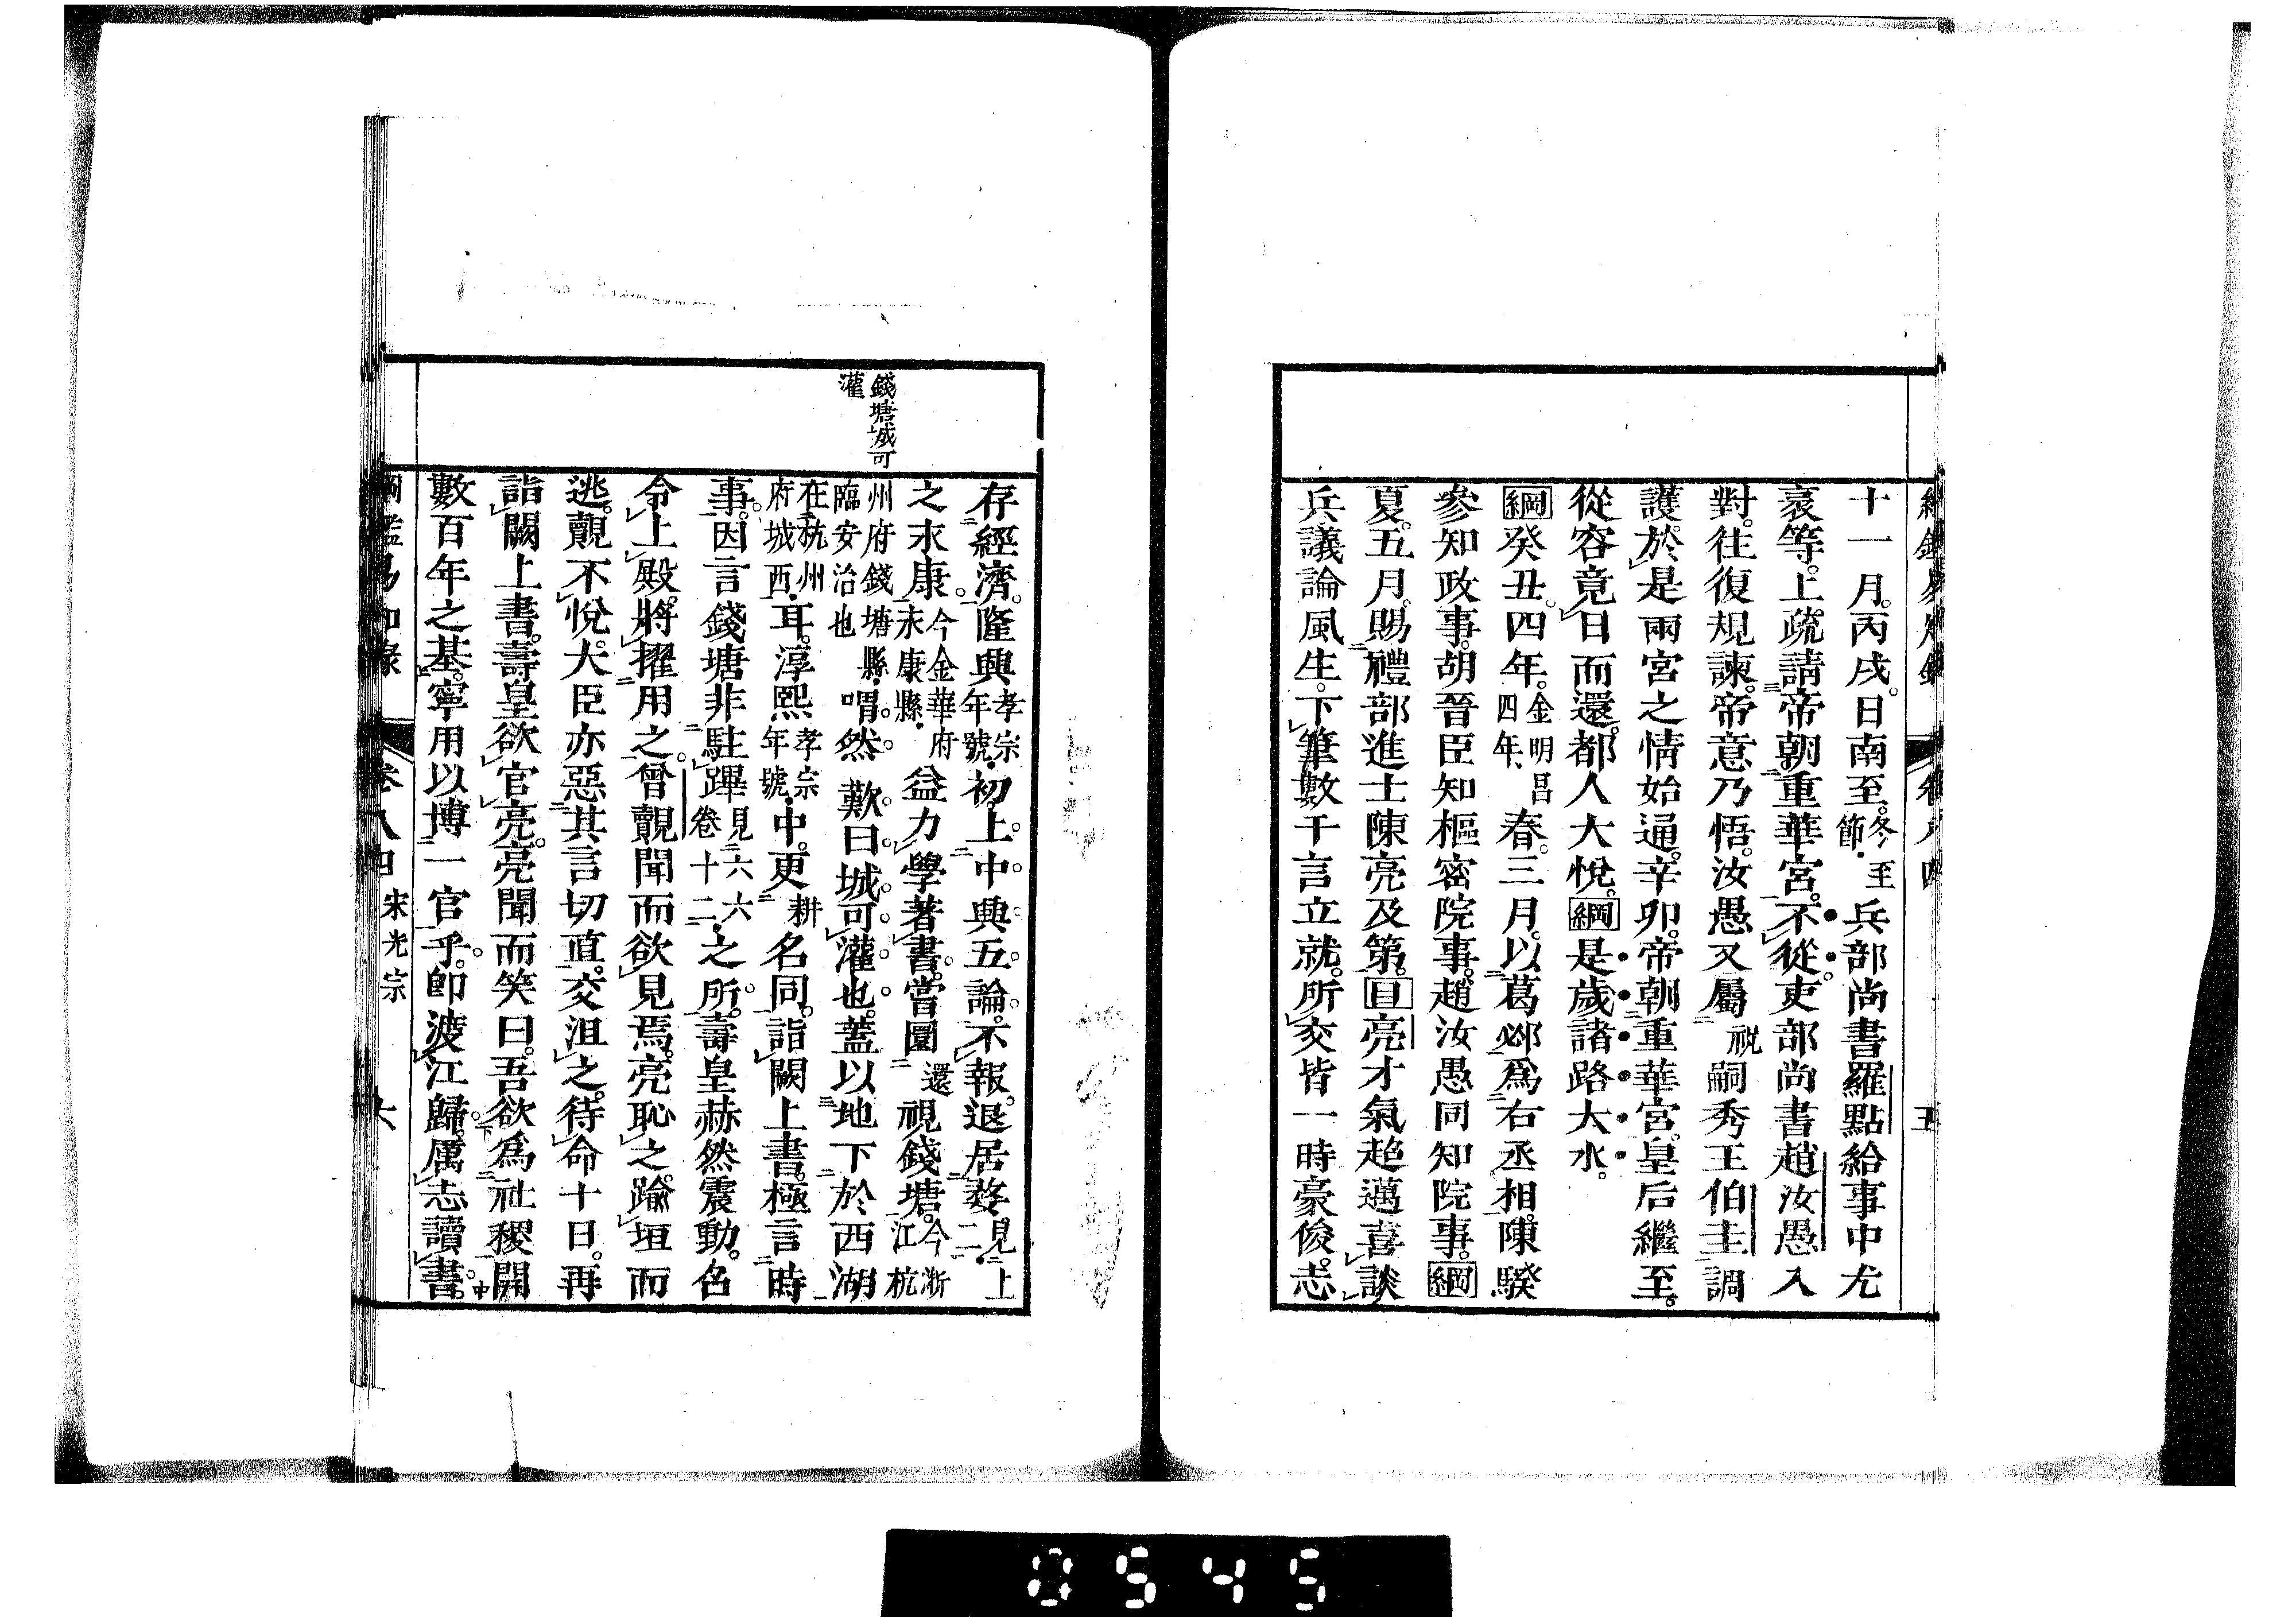 十一月。丙戌。日南至。冬至節。兵部尚書羅點給事中尤
袤等。上疏請帝朝重華宮。不從。吏部尚書趙汝愚入
對。往復規諫。帝意乃悟。汝愚又屬祝嗣秀王伯圭調
護。於是兩宮之情始通。辛卯。帝朝重華宮。皇后繼至。
從容竟日而還。都人大悅。綱是歲諸路大水。
綱癸丑。四年。金明昌四年。春。三月。以葛邲爲右丞相。陳騤
參知政事。胡晉臣知樞密院事。趙汝愚同知院事。綱
夏。五月。賜禮部進士陳亮及第。目亮才氣超邁。喜談
兵。議論風生。下筆數千言立就。所交皆一時豪俊。志
錢塘誠可
灌
存經濟。隆興孝宗年號。初。上中興五論。不報。退居婺見上二。
之永康。今金華府永康縣。益力學著書。嘗圜還視錢塘。今浙江杭
州府錢塘縣。臨安治也喟然歎曰。城可灌也。蓋以地下於西湖
在杭州府城西。耳。淳熙孝宗年號。中。更耕名同。詣闕上書。極言時
事。因言錢塘非駐蹕見六六卷十二。之所。壽皇赫然震動。召
令上殿。將擢用之。曾覿聞而欲見焉。亮恥之。踰垣而
逃。覿不悅。大臣亦惡其言切直。交沮之。待命十日。再
詣闕上書。壽皇欲官亮。亮聞而笑曰。吾欲爲社稷開
數百年之基。寧用以博一官乎。卽渡江歸。厲志讀書。
綱鑑易知錄 卷八四 宋光宗 六